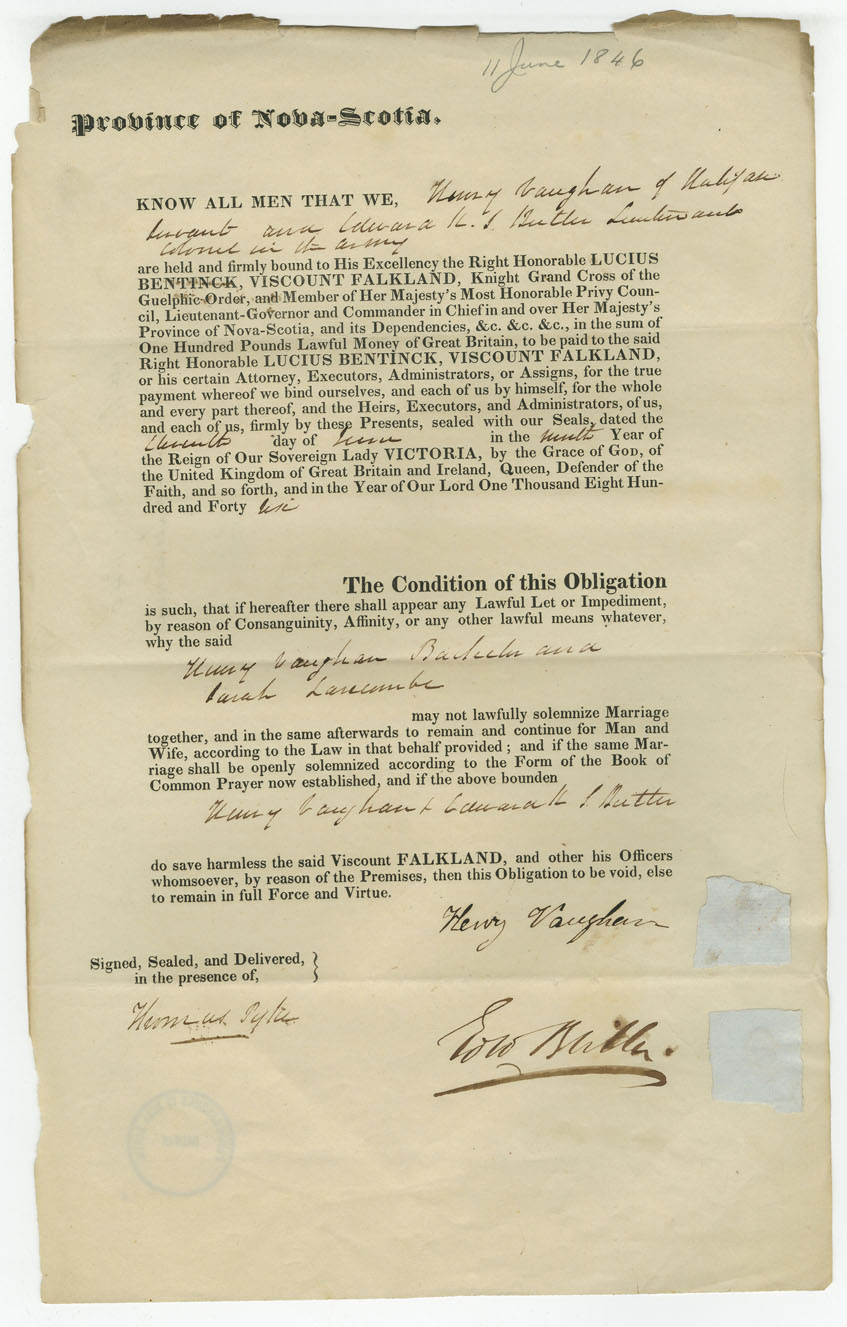 11 June 1846
Province of Nova-Scotia.
KNOW ALL MEN THAT WE, Henry Vaughan of Halifax
Servant and Edward K. S. Butler Lieutenant
Colonel in the army
are held and firmly bound to His Excellency the Right Honorable LUCIUS
BENTINCK, VISCOUNT FALKLAND, Knight Grand Cross of the
Guelphic Order, and Member of Her Majesty's Most Honorable Privy Coun-
cil, Lieutenant-Governor and Commander in Chief in and over Her Majesty's
Province of Nova-Scotia, and its Dependencies, &c. &c. &c., in the sum of
One Hundred Pounds Lawful Money of Great Britain, to be paid to the said
Right Honorable LUCIUS BENTINCK, VISCOUNT FALKLAND,
or his certain Attorney, Executors, Administrators, or Assigns, for the true
payment whereof we bind ourselves, and each of us by himself, for the whole
and every part thereof, and the Heirs, Executors, and Administrators, of us,
and each of us, firmly by these Presents, sealed with our Seals, dated the
Eleventh day of June in the ninth Year of
the Reign of Our Sovereign Lady VICTORIA, by the Grace of GOD, of
the United Kingdom of Great Britain and Ireland, Queen, Defender of the
Faith, and so forth, and in the Year of Our Lord One Thousand Eight Hun-
dred and Forty six
The Condition of this Obligation
is such, that if hereafter there shall appear any Lawful Let or Impediment,
by reason of Consanguinity, Affinity, or any other lawful means whatever,
why the said
Henry Vaughan Bachelor and
Sarah Larcombe
may not lawfully solemnize Marriage
together, and in the same afterwards to remain and continue for Man and
Wife, according to the Law in that behalf provided ; and if the same Mar-
riage shall be openly solemnized according to the Form of the Book of
Common Prayer now established, and if the above bounden
Henry Vaughan & Edward K S Butler
do save harmless the said Viscount FALKLAND, and other his Officers
whomsoever, by reason of the Premises, then this Obligation to be void, else
to remain in full Force and Virtue.
Henry Vaughan
Signed, Sealed, and Delivered, }
in the presence of,
Thomas Pyke
Edw Butler.